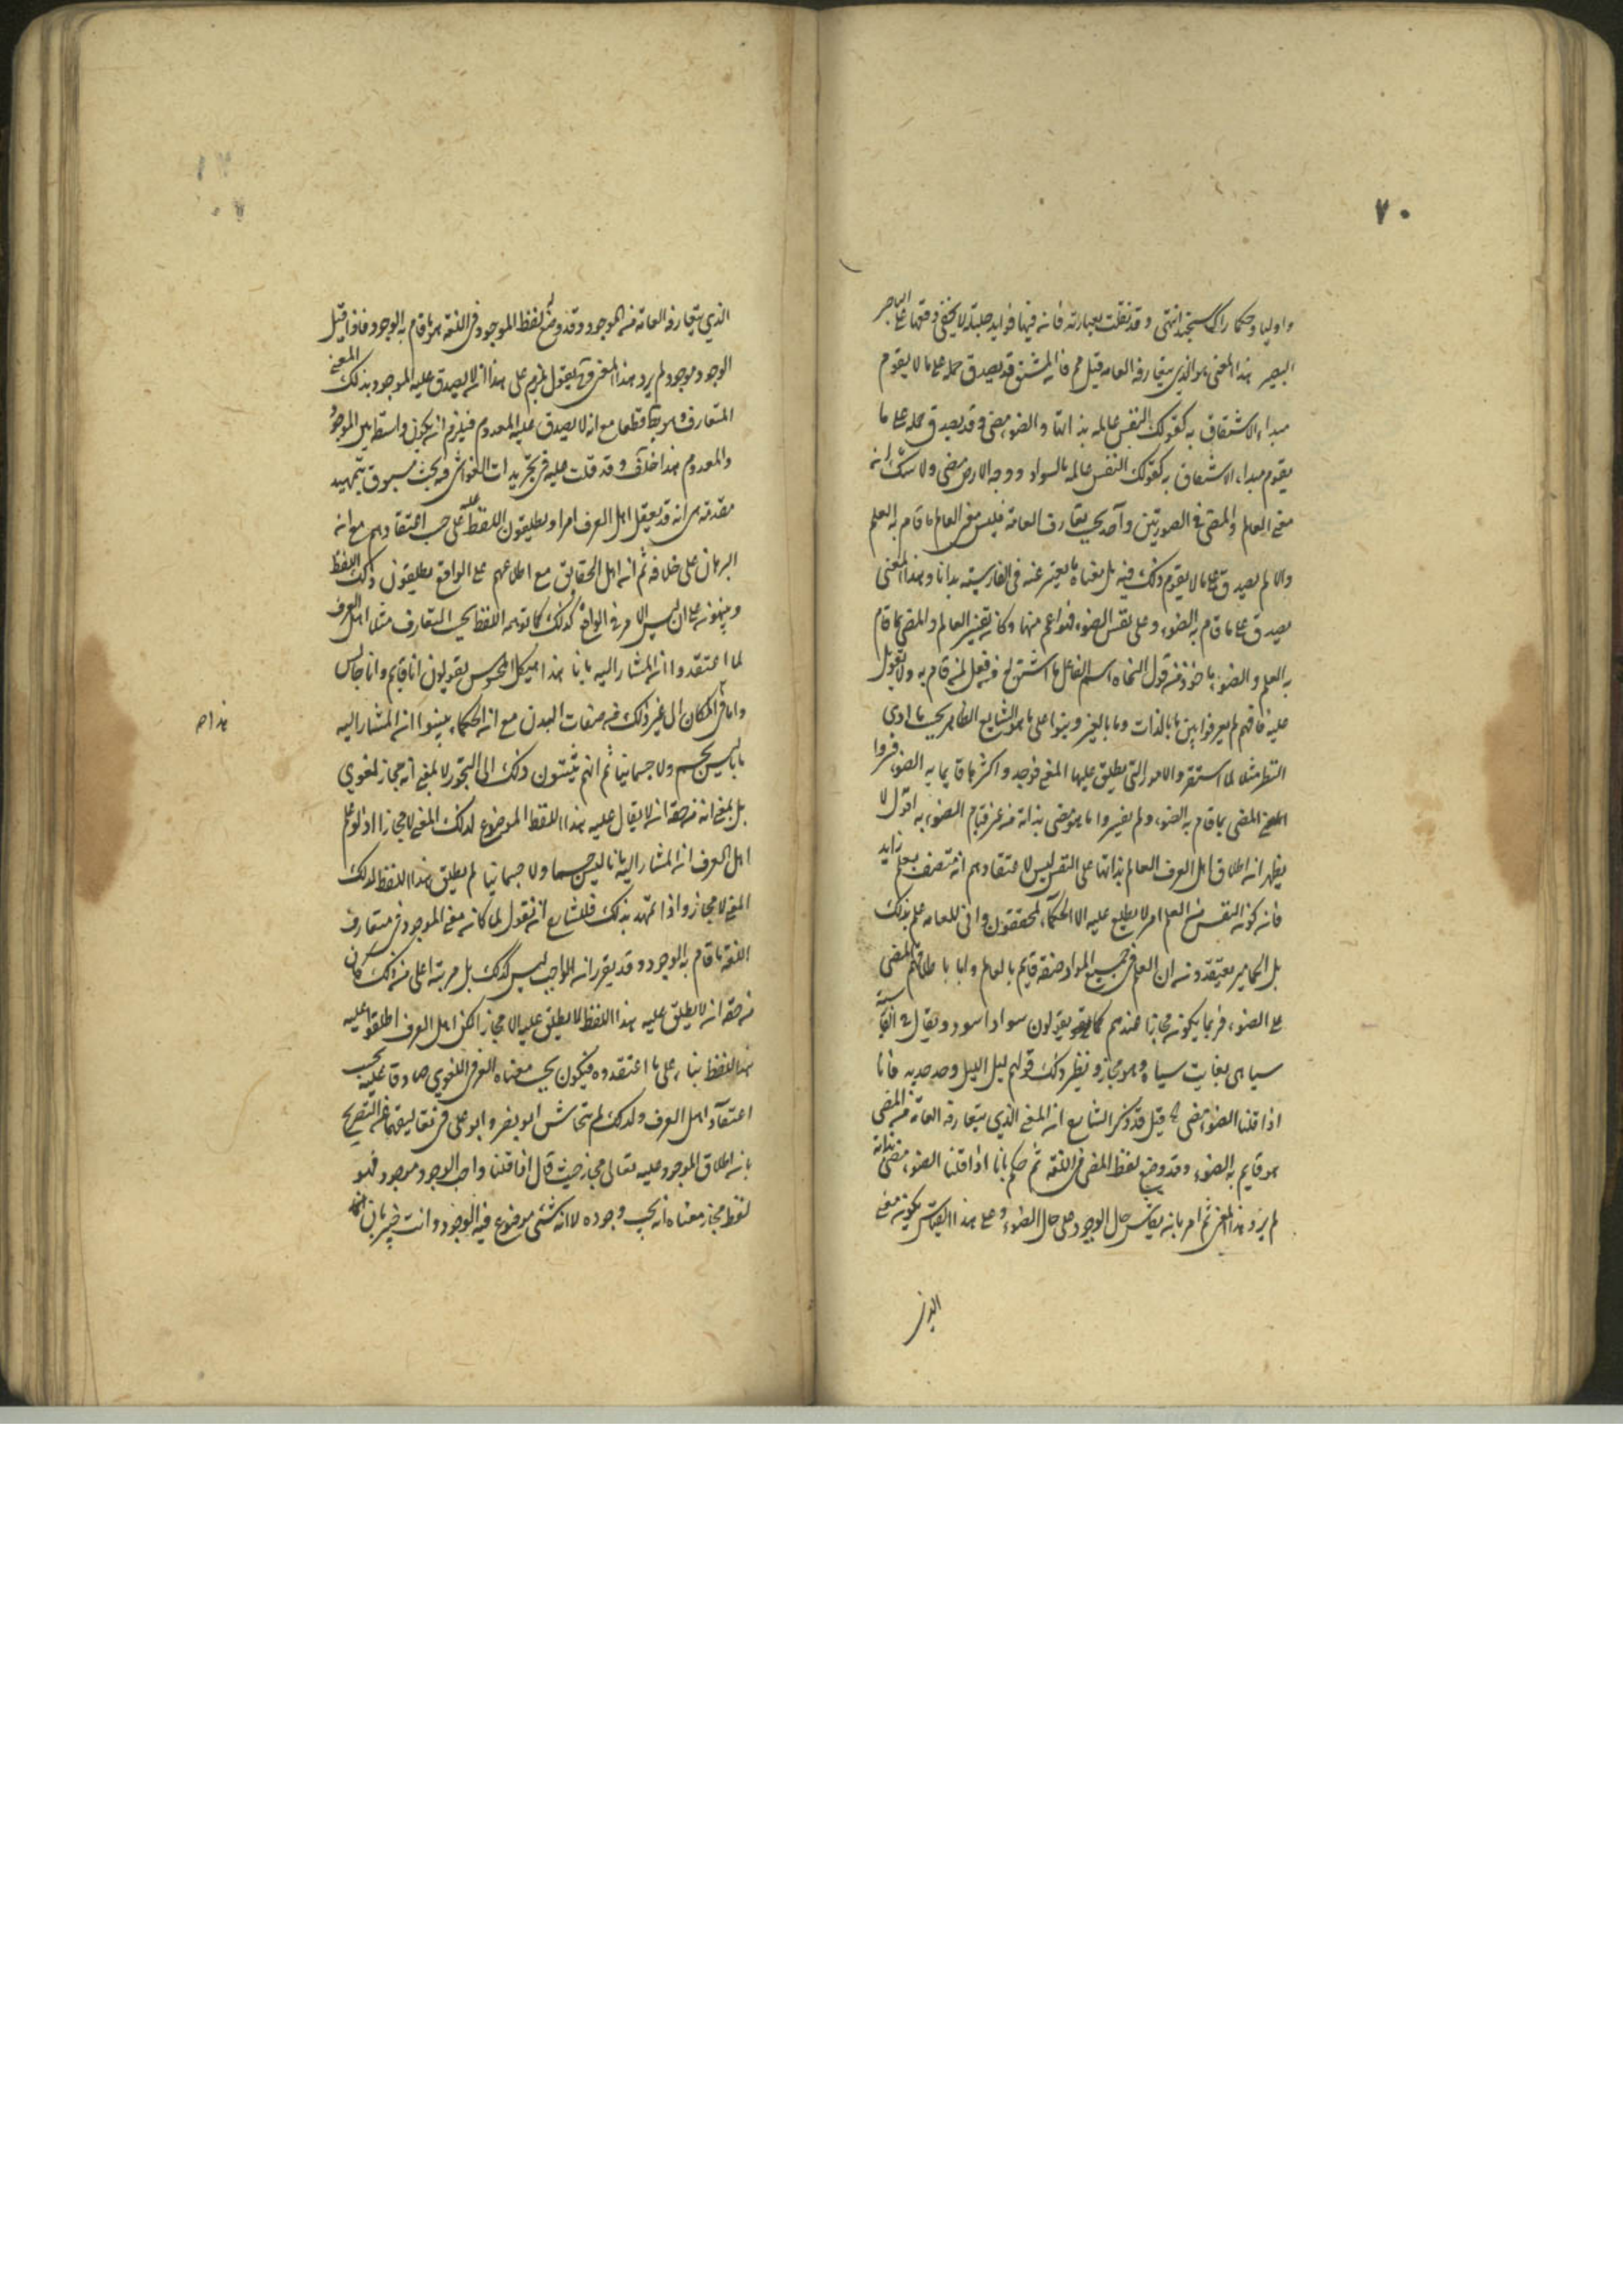 ٧٠
واوليا وحكما را سنجند انتهى وقد نقلت بعبارته فانه فيها فوايد جليلة لا يخفى وقعها على الماهر
البصير هذا المعنى هو الذي يتعارفه العامه قيل مم فانه المشتق قد يصدق حمله على ما لا يقوم
مبداء الاشتقاق به كقولك النفس عالمه بذاتها والضوء مضى وقد يصدق حمله على ما
يقوم مبداء الاشتقاق به كقولك النفس عالمه بالسواد ووجه الارض مضى ولا شك انه
معنى العالم والمضى في الصورتين واحد بحسب تعارف العامة فليس معنى العالم ما قام به العلم
والا لم يصدق على ما لا يقوم ذلك فيه بل معناه ما يعبر عنه في الفارسيه بدانا وهذا المعنى
يصدق على ما قام به الضوء وعلى نفس الضوء فهو اعم منها وكانه تفسير العالم والمضى بما قام
به العلم والضوء ماخوذ من قول النحاة اسم الفاعل ما اشتق من فعل لمن قام به ولا تعويل
عليه فانهم لم يعرفوا بين ما بالذات وما بالغير وبنوا على ما هو الشايع الظاهر بحسب بادى
النظر مثلا لما استقروا الامور التي يطلق عليها المضى فوجدوا اكثرها قايما به الضوء فسروا
المضى بما قام به الضوء ولم يفسروا بما هو مضى بذاته من غير قيام الضوء به اقول لا
يظهر انه اطلاق اهل العرف العالم بذاتها على النفس ليس لاعتقادهم انه متصف بعلم زايد
فانه كونه النفس نفس العلم امر لا يطلع عليه الا الحكماء المحققون وانى للعامه علم بذلك
بل الجماهير يعتقدونه ان العلم في جميع المواد صفة قايم بالعالم واما باطلاقهم المضى
على الضوء فربما يكونه مجازا عندهم كما يقولون سواد اسود ويقال بالفارسية
سياهى بغايت سياه وهو مجاز ونظير ذلك قولهم ليل اليل وجد جديد فانا
اذا قلنا الضوء مضى قيل قد ذكر الشايع انه المعنى الذي يتعارفه العامة من المضى
هو قايم به الضوء وقد وضع لفظ المضى في اللغة ثم حكم بانا اذا قلنا الضوء مضى بذاته
لم يرد هذا المعنى ثم امر بانه يقاس حال الوجود على حال الضوء وعلى هذا القياس يكونه معنى
الذي
الذي يتعارفه العامة من الموجود وقد وضع له لفظ الموجود في اللغة هو ما قام به الوجود فاذا قيل
الوجود موجود لم يرد هذا المعنى وح يقول يلزم على هذا انه لا يصدق عليه الموجود بذلك المعنى
المتعارف هو بط قطعا مع انه لا يصدق عليه المعدوم فيلزم انه يكون واسطة بين الموجود
والمعدوم هذا خلف وقد قلت عليه في تجريدات الغواشى وفيه بحث مسبوق بتمهيد
مقدمة هى انه قد يعقل اهل العرف امرا ويطلقون اللفظ عليه على حسب اعتقادهم مع انه
البرهان على خلافه ثم انه اهل الحقايق مع اطلاعهم على الواقع يطلقون ذلك اللفظ
وينبهونه على ان ليس الامر في الواقع كذلك كما توهمه اللفظ بحسب المتعارف مثلا اهل العرف
لما اعتقدوا انه المشار اليه بانا هذا الهيكل المحسوس يقولون انا قايم وانا جالس
وانا في المكان الى غير ذلك من صفات البدن مع انه الحكماء بينوا انه المشار اليه
بانا ليس بجسم ولا جسمانيا ثم انهم ينسبون ذلك الى التجوز لا بمعنى انه مجاز لغوي
بل بمعنى انه من حقه انه لا يقال عليه هذا اللفظ الموضوع لذلك المعنى لا مجازا اذ لو علم
اهل العرف انه المشار اليه بانا ليس جسما ولا جسمانيا لم يطلق هذا اللفظ لذلك
المعنى لا مجاز واذا تمهد بذلك فللشايع انه نقول لما كانه معنى الموجود في متعارف
اللغة ما قام به الوجود وقد تقرر انه الواجب ليس كذلك بل مرتبة اعلى من ذلك كان
من حقه انه لا يطلق عليه هذا اللفظ لا يطلق عليه الا مجازا لكن اهل العرف اطلقوا عليه
هذا اللفظ بناء على ما اعتقدوه فيكون بحسب معناه العرفي اللغوي صادقا عليه بحسب
اعتقاد اهل العرف ولذلك لم يتحاش ابو نصر وابو على في تعاليقهما عن التصريح
بانه اطلاق الموجود عليه تعالى مجاز حيث قال اذا قلنا واجب الوجود موجود فهو
لفظ مجاز معناه انه يجب وجوده لا انه شئ موضوع فيه الوجود وانت خبير بان هذا
هذا ص